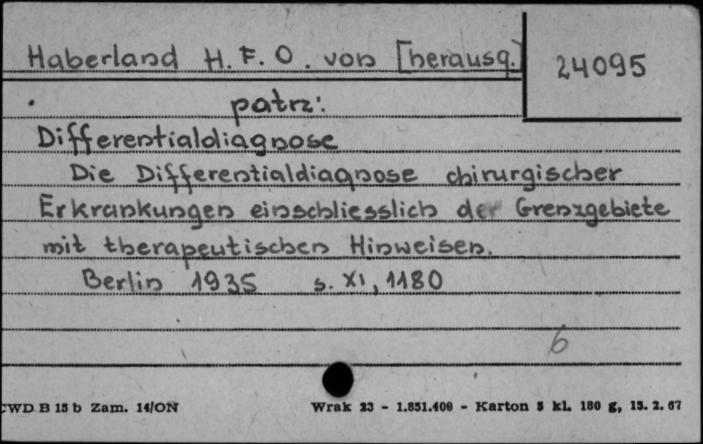 Haberland H. F. O. von [herausg.]
24095
patrz:
Differentialdiagnose
Die Differentialdiagnose chirurgischer
Erkrankungen einschliesslich der Grenzgebiete
mit therapeutischen Hinweisen.
Berlin 1935 s. XI, 1180
6
CWD B 15 b Zam. 14/ON
Wrak 23 - 1.851.400 - Karton 5 kl. 180 g, 15. 2. 67